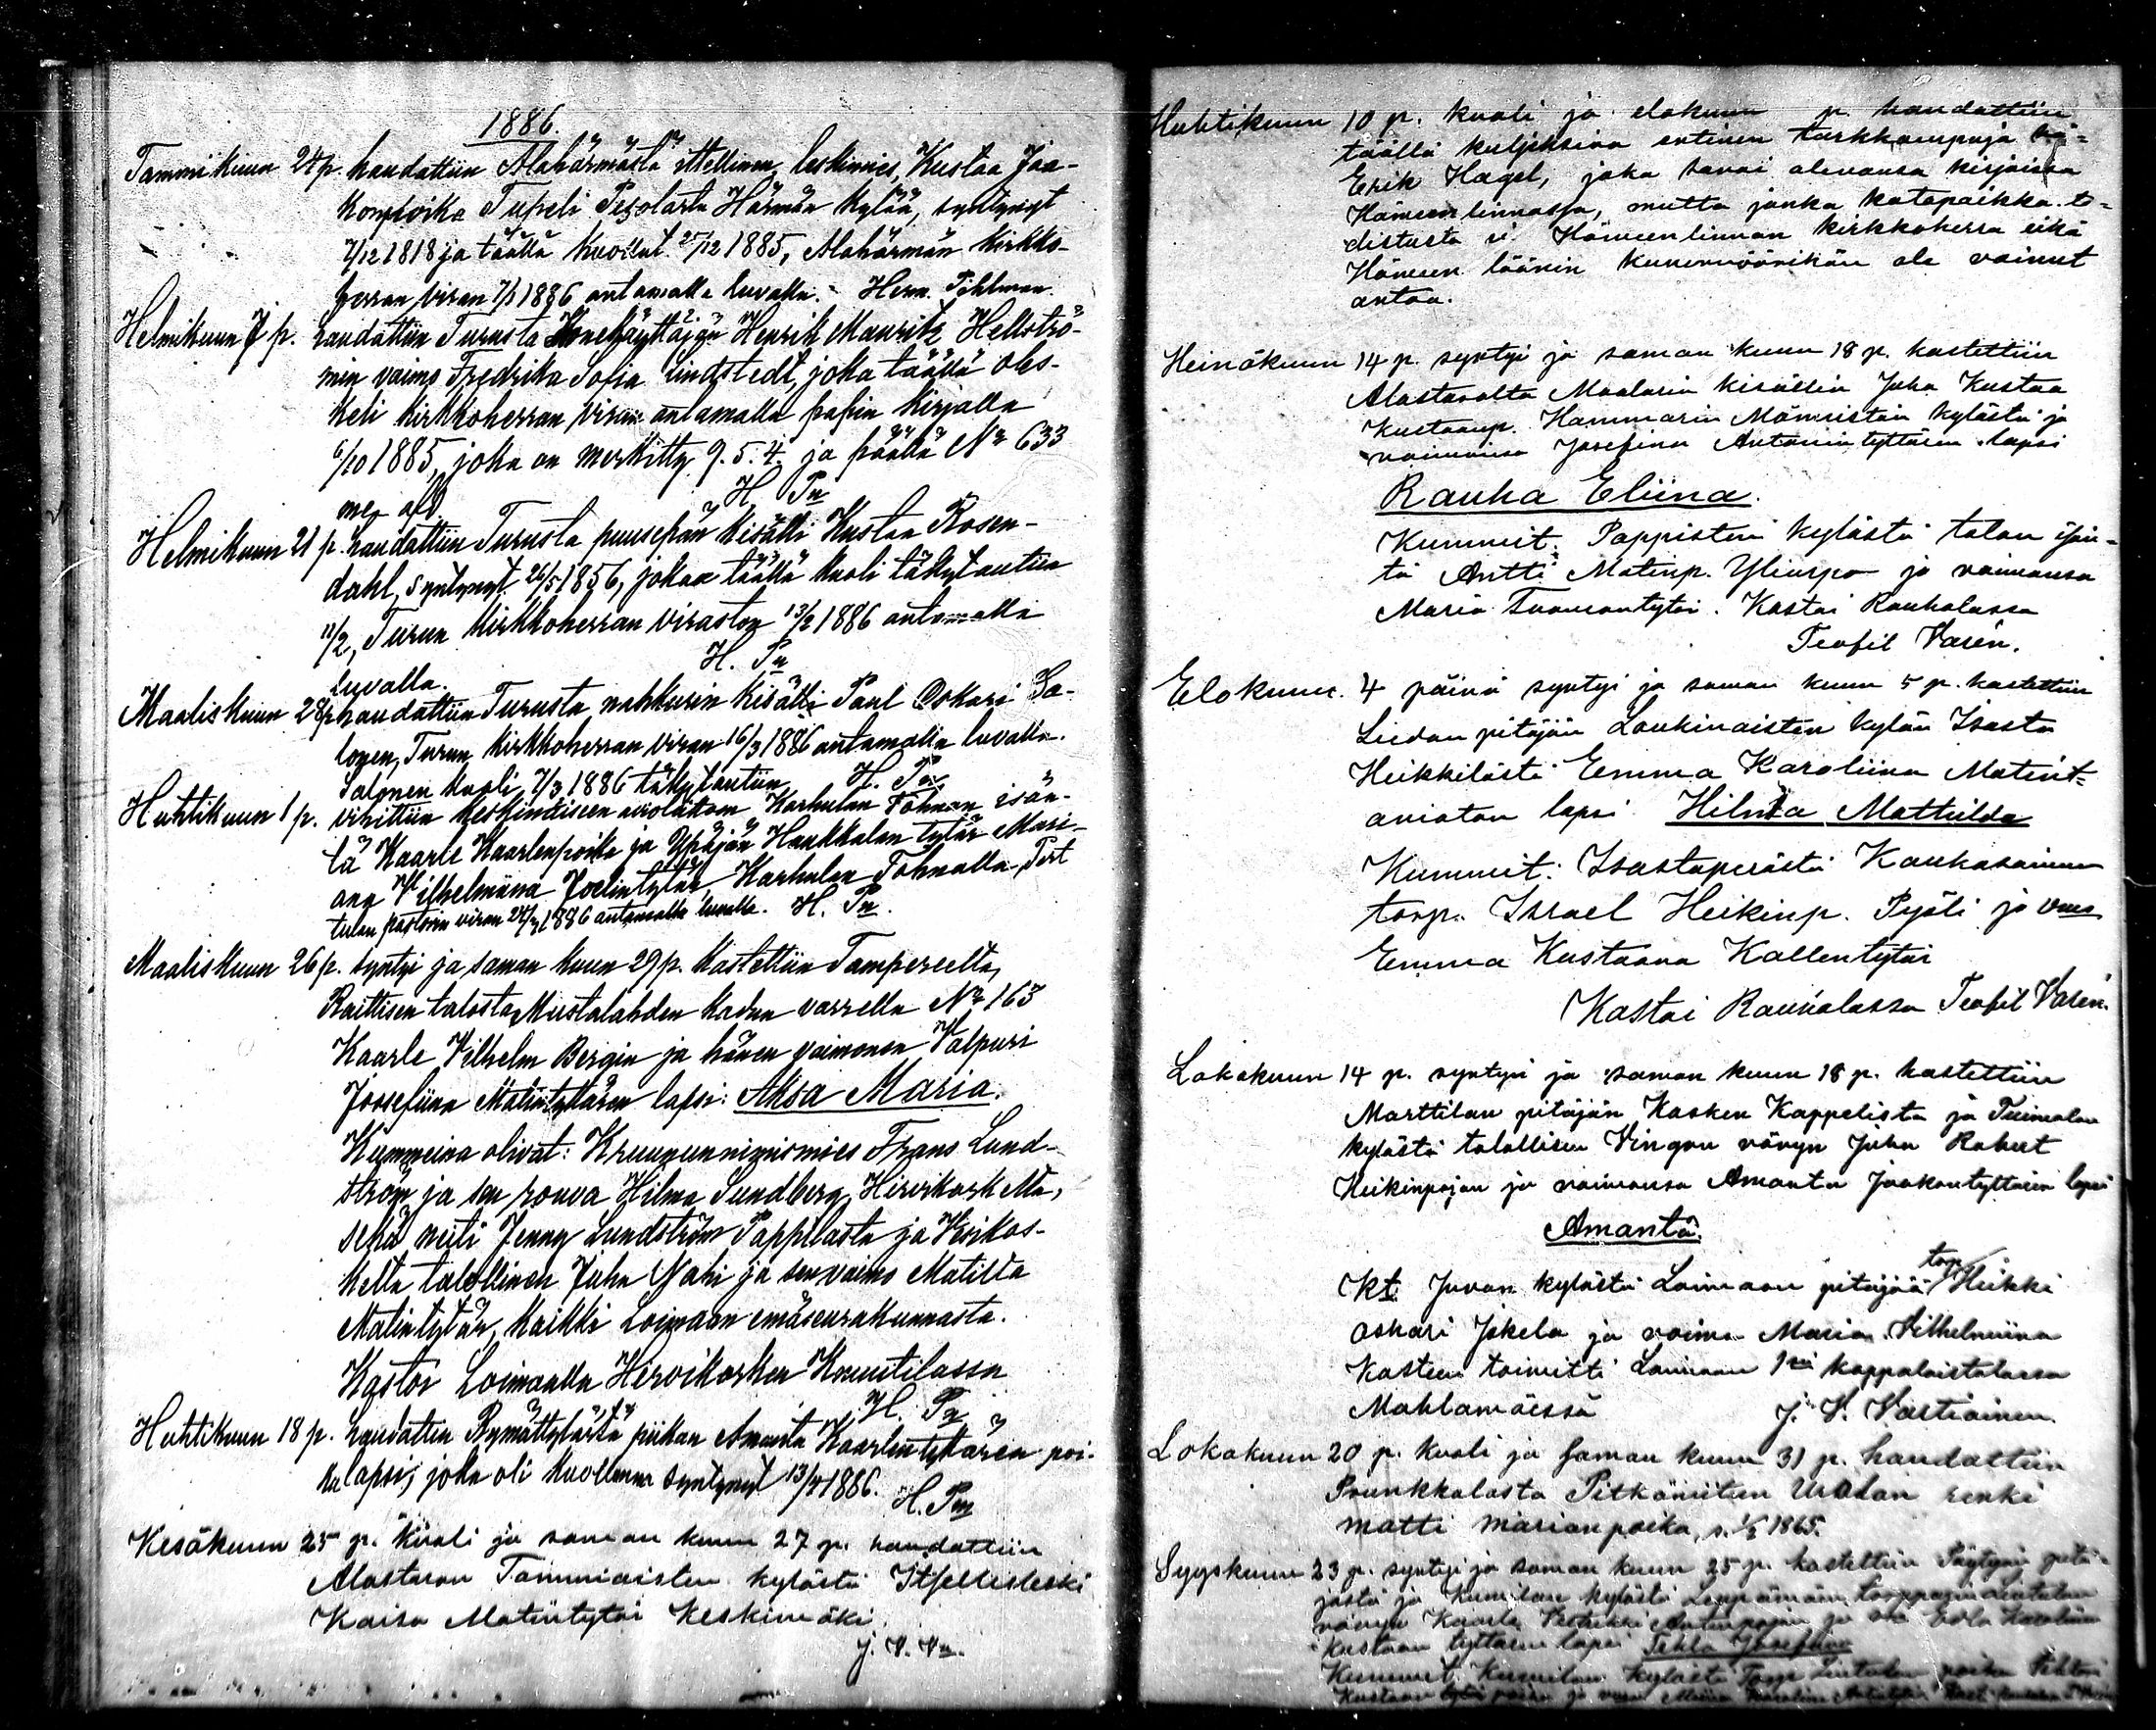 1886.
Tammikuun 24 p. haudattiin Alahärmästä ittellinen leskimies, Kustaa Jaa-
konpoika Tupeli Pesolasta Härmän kylää, syntynyt
7/12 1818 ja täällä kuollut 27/12 1885, Alahärmän kirkko-
herran viran 7/1 1886 antamalla luvalla. Herm. Påhlman.
Helmikuun 7 p. haudattiin Turusta Konekäyttäjän Henrik Mauritz Hellströ-
min vaimo Fredrika Sofia Lindstedt, joka täällä oles-
keli kirkkoherran viran antamalla papin kirjalla
6/10 1885, joka on merkitty 9. 5. 4. ja päällä No 633
H. Pn
Helmikuun 21 p. haudattiin Turusta puusepän kisälli Kustaa Rosen-
dahl, syntynyt 26/5 1856, joka täällä kuoli
11/2, Turun kirkkoherran viraston 13/2 1886 antamalla
luvalla. H. Pn
Maaliskuun 28 p. haudattiin Turusta nahkurin kisälli Paul Oskari Sa-
lonen, Turun kirkkoherran viran 16/3 1886 antamalla luvalla.
Salonen kuoli 7/3 1886 H. Pn
Huhtikuun 1 p. vihittiin avioliittoon Karhulan isän-
tä Kaarle Kaarlenpoika ja Ypäjän Haukkalan tytär Mari-
ana Vilhelmiina Joelintytär, Karhulan
tulan pastorin viran 1886 antamalla luvalla. H. Pn.
Maaliskuun 26 p. syntyi ja saman kuun 29 p. kastettiin Tampereelta,
Raittisen talosta Mustalahden kadun varrella No 163
Kaarle Vilhelm Bergin ja hänen vaimonsa Valpuri
Joosefiina Matintyttären lapsi: Aksa Maria.
Kummeina olivat: Kruununnimismies Frans Lund-
ström ja sen rouva Hilma Sundberg, Hirvikoskelta,
sekä neiti Jenny Lundström Pappilasta ja Vesikos-
kelta talollinen Juha Nahi ja sen vaimo Matilta
Matintytär, kaikki Loimaan emäseurakunnasta.
Kastoi Loimaalla Hirvikosken
H. Pn
Huhtikuun 18 p. haudattiin Rymättylästä piikan Amanta Kaarlentyttären poi-
kalapsi, joka oli kuolleena syntynyt 13/4 1886.
H. Pn
Kesäkuun 25 p. kuoli ja saman kuun 27 p. haudattiin
Alastaron Tammiaisten kylästä Itsellisleski
Kaisa Matintytär Keskimäki
J. V. Vn.
Huhtikuun 10 p. kuoli ja elokuun p. haudattiin
täällä kuljeksiva entinen
Erik Hagel, joka sanoi olevansa kirjoissa
Hämeenlinnassa, mutta jonka kotopaikka to-
distusta ei Hämeenlinnan kirkkoherra eikä
Hämeen läänin kuvernöörikään ole voinut
antaa.
Heinäkuun 14 p. syntyi ja saman kuun 18 p. kastettiin
Alastarolta Maalarin kisällin Juha Kustaa
Kustaanp. Hammarin Männistön kylästä ja
vaimonsa Josefina Antonintyttären lapsi
Rauha Eliina.
Kummit: Pappisten kylästä talon isän-
tä Antti Matinp. Yliuspo ja vaimonsa
Maria Tuomontytär. Kastoi Rauhalassa
Teofil Varén.
Elokuun 4 päivä syntyi ja saman kuun 5 p. kastettiin
Liedon pitäjän Loukinaisten kylän Isosta
Heikkilästä Emma Karoliina Matint-
avioton lapsi Hilma Mathilda
Kummit: Isostaperästä
torp. Israel Heikinp. Pyöli ja vmo
Emma Kustaava Kallentytär
Kastoi Rauhalassa Teofil Varén.
Lokakuun 14 p. syntyi ja saman kuun 18 p. kastettiin
Marttilan pitäjän Kosken Kappelista ja Tuimalan
kylästä talollisen Vingon vävyn Juha Robert
Heikinpojan ja vaimonsa Amanta Jaakontyttären lapsi
Amanta.
Kt. Juvan kylästä Loimaan pitäjää torp. Heikki
Oskari Jokela ja vaimo Maria Vilhelmiina
Kasteen toimitti Loimaan 1sä kappalaistalossa
Mahlamäessä J. V. Vartiainen.
Lokakuun 20 p. kuoli ja saman kuun 31 p. haudattiin
Prunkkalasta Pitkäniitun renki
Matti Marianpoika, s. 1865.
Syyskuun 23 p. syntyi ja saman kuun 25 p. kastettiin Pöytyän pitä-
jästä ja Kumilan kylästä
vävyn Kaarle Antinpojan ja
Kustaantyttären lapsi Tekla Josefiina
Kummit: Kumilan kylästä